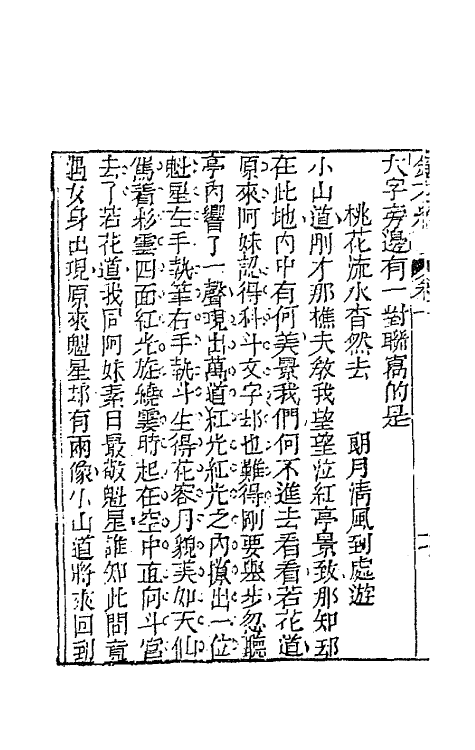 大字旁邊有一對聯寫的是
桃花流水杳然去　朗月清風到處遊
小山道剛才那樵夫敎我望望泣紅亭景致那知却
在此地內中有何美景我們何不進去看看若花道
原來阿妹認得科斗文字却也難得剛要舉步忽聽
亭內響了一聲現出萬道紅光紅光之內攛出一位
魁星左手執筆右手執斗生得花容月貌美如天仙
駕着彩雲四面紅光旋繞霎時起在空中直向斗宮
去了若花道我同阿妹素日最敬魁星誰知此間竟
遇女身出現原來魁星却有兩像小山道將來回到